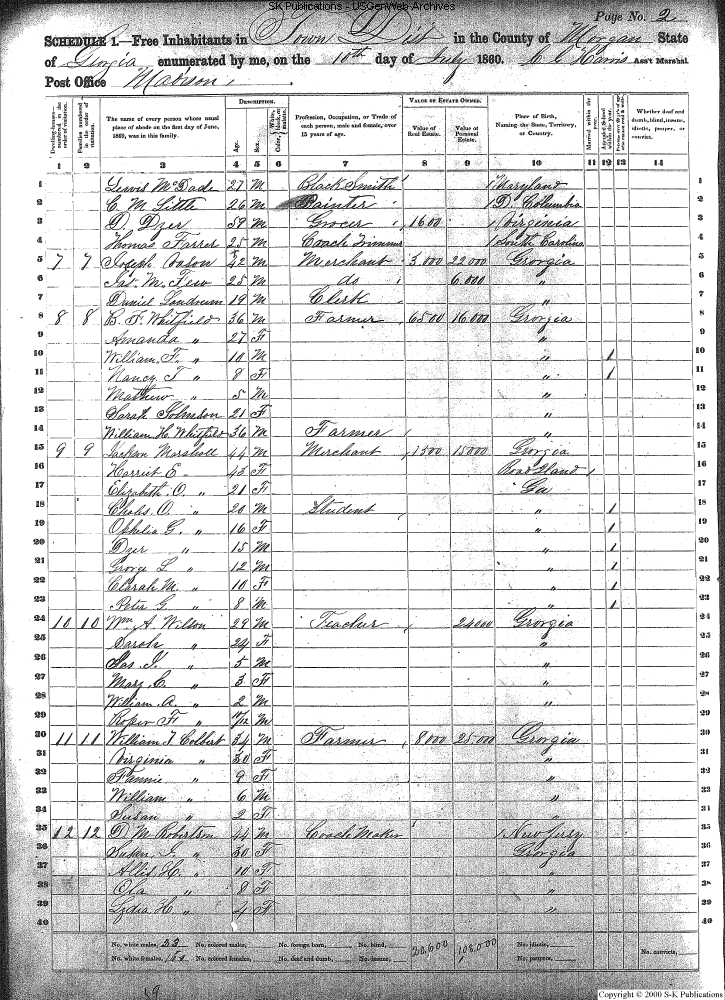 SK Publications - USGenWeb Archives
Page No. 2
SCHEDULE 1.—Free Inhabitants in Town Dist in the County of Morgan State
of Georgia enumerated by me, on the 10th day of July 1860. C C Harris Ass't Marshal
Post Office Madison
Dwelling-houses— numbered in the order of visitation.
Families numbered in the order of visitation.
The name of every person whose usual place of abode on the first day of June, 1860, was in this family.
DESCRIPTION.
Age.
Sex.
Color, White, black, or mulatto.
Profession, Occupation, or Trade of each person, male and female, over 15 years of age.
VALUE OF ESTATE OWNED.
Value of Real Estate.
Value of Personal Estate.
Place of Birth, Naming the State, Territory, or Country.
Married within the year.
Attended School within the year.
Whether deaf and dumb, blind, insane, idiotic, pauper, or convict.
1 2 3 4 5 6 7 8 9 10 11 12 13 14
1 Lewis McDade 27 M Black Smith / Maryland 1
2 C M Little 26 M Painter / D. Columbia 2
3 D. Dyer 59 M Grocer 1600 / Virginia 3
4 Thomas Farrer 25 M Coach Trimmer / South Carolina 4
5 7 7 Joseph Vason 42 M Merchant 3000 22000 Georgia 5
6 Jas. M. Few 25 M do 6000 " 6
7 Daniel Landrum 19 M Clerk " 7
8 8 8 B. F. Whitfield 36 M Farmer 6500 16000 Georgia 8
9 Amanda " 27 F " 9
10 William F. " 10 M " 1 10
11 Nancy T " 8 F " 1 11
12 Mathew " 5 M " 12
13 Sarah Johnson 21 F " 13
14 William H. Whitfield 36 M Farmer " 14
15 9 9 Jackson Marshall 44 M Merchant 1500 15000 Georgia 15
16 Harriet E " 43 F Road Iland 16
17 Elizabeth O. " 21 F Ga 17
18 Chas O. " 20 M Student " 1 18
19 Ophelia G. " 16 F " 1 19
20 Dyer " 15 M " 1 20
21 George L " 12 M " 1 21
22 Clarah M. " 10 F " 1 22
23 Peter G. " 8 M " 1 23
24 10 10 Wm A Wilson 29 M Teacher 24000 Georgia 24
25 Sarah " 24 F " 25
26 Jas. J. " 5 M " 26
27 Mary C. " 3 F " 27
28 William A. " 2 M " 28
29 Roper F " M " 29
30 11 11 William T Colbert 34 M Farmer 8000 25000 Georgia 30
31 Virginia " 30 F " 31
32 Fannie " 9 F " 32
33 William " 6 M " 33
34 Susan " 2 F " 34
35 12 12 D M Robertson 44 M Coach Maker / New Jersy 35
36 Susan J. " 30 F Georgia 36
37 Allis H. " 10 F " 37
38 Ola " 8 F " 38
39 Lydia H " 4 F " 39
40 40
No. white males, 23 No. colored males, No. foreign born, No. blind, 20,600 108,000 No. idiotic, No. convicts,
No. white females, No. colored females, No. deaf and dumb, No. insane, No. paupers,
19
Copyright © 2000 S-K Publications